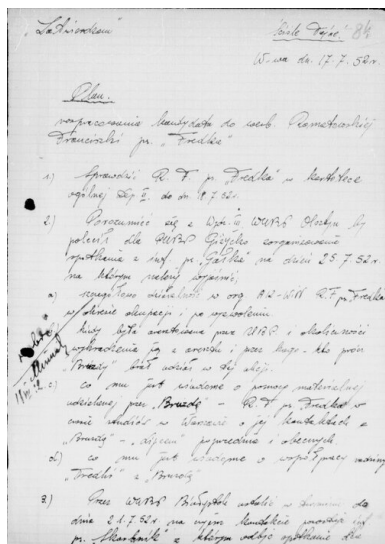 "Zatwierdzam"
Ściśle Tajne! 84
W-wa dn. 17.7.52 r.
Plan.
rozpracowania kandydata do werb. Ramotowskiej
Franciszki ps. "Fredka"
1) Sprawdzić R. F. ps. "Fredka" w kartotece
ogólnej Dep. III do dn. 19.7.52 r.
2) Porozumieć się z Wydz. III WUBP Olsztyn by
polecił dla PUBP Giżycko zorganizowanie
spotkania z inf. ps. "Gałka" na dzień 25.7.52 r.
na którym należy wyjaśnić:
a) szczegółowo działalność w org. AK-WiN R.F. ps. Fredka
w okresie okupacji i po wyzwoleniu
kiedy była aresztowana przez UBP i okoliczności
wykradzenia jej z aresztu i przez kogo. Kto prócz
"Bruzdy" brał udział w tej akcji.
c) co mu jest wiadome o pomocy materialnej
udzielonej przez "Bruzdę" - R. F. ps. "Fredka" w
czasie studiów w Warszawie o jej kontaktach z
"Bruzdą" - poprzednio i obecnych
d) co mu jest wiadome o współpracy
"Fredki" z "Bruzdą"
3) Przez WUBP Białystok ustalić w terminie do
dnia 21.7.52 r. na czyim kontakcie pozostaje inf.
ps. z którym odbyć spotkanie